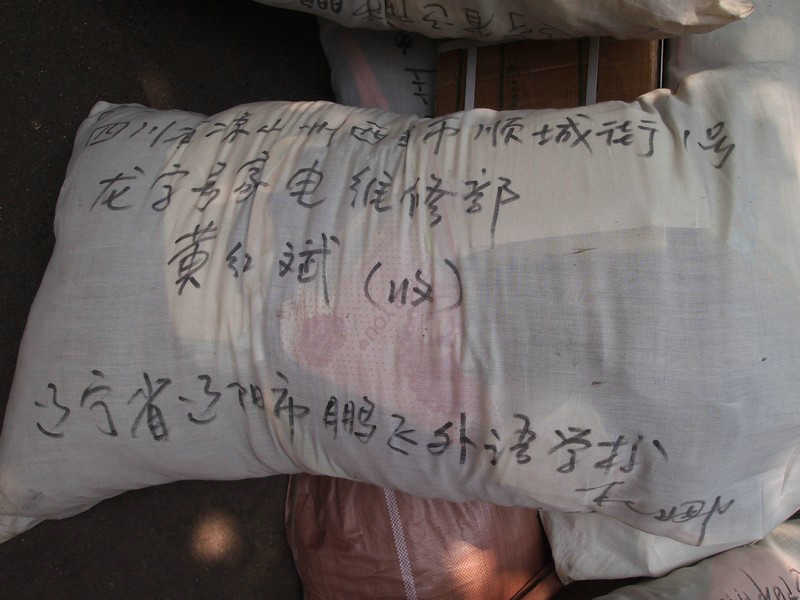 四川省凉山州西昌市顺城街1号
龙字号家电维修部
黄红斌(收)
辽宁省辽阳市鹏飞外语学校